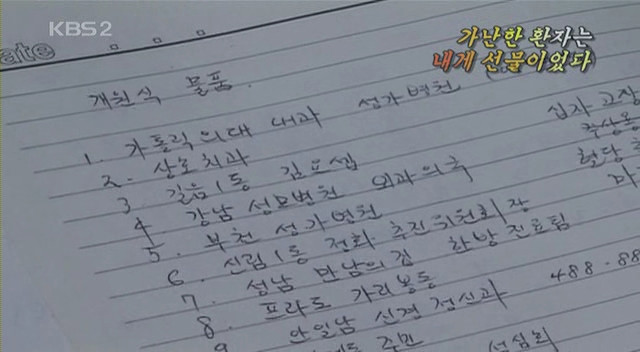 KBS2
가난한 환자는
내게 선물이었다
ate
개원식 물품
1. 가톨릭의대 내과 성가병원
2. 상호치과 십자고상
3 길음1동 김요셉
4. 강남 성모병원 외과의국
5. 부천 성가병원
6. 신림1동 전화 추진위원회장
7. 성남 만남의집 한방진료팀
8. 프라도 가리봉동
안일남 신경정신과 488-88
9 주민 성심회